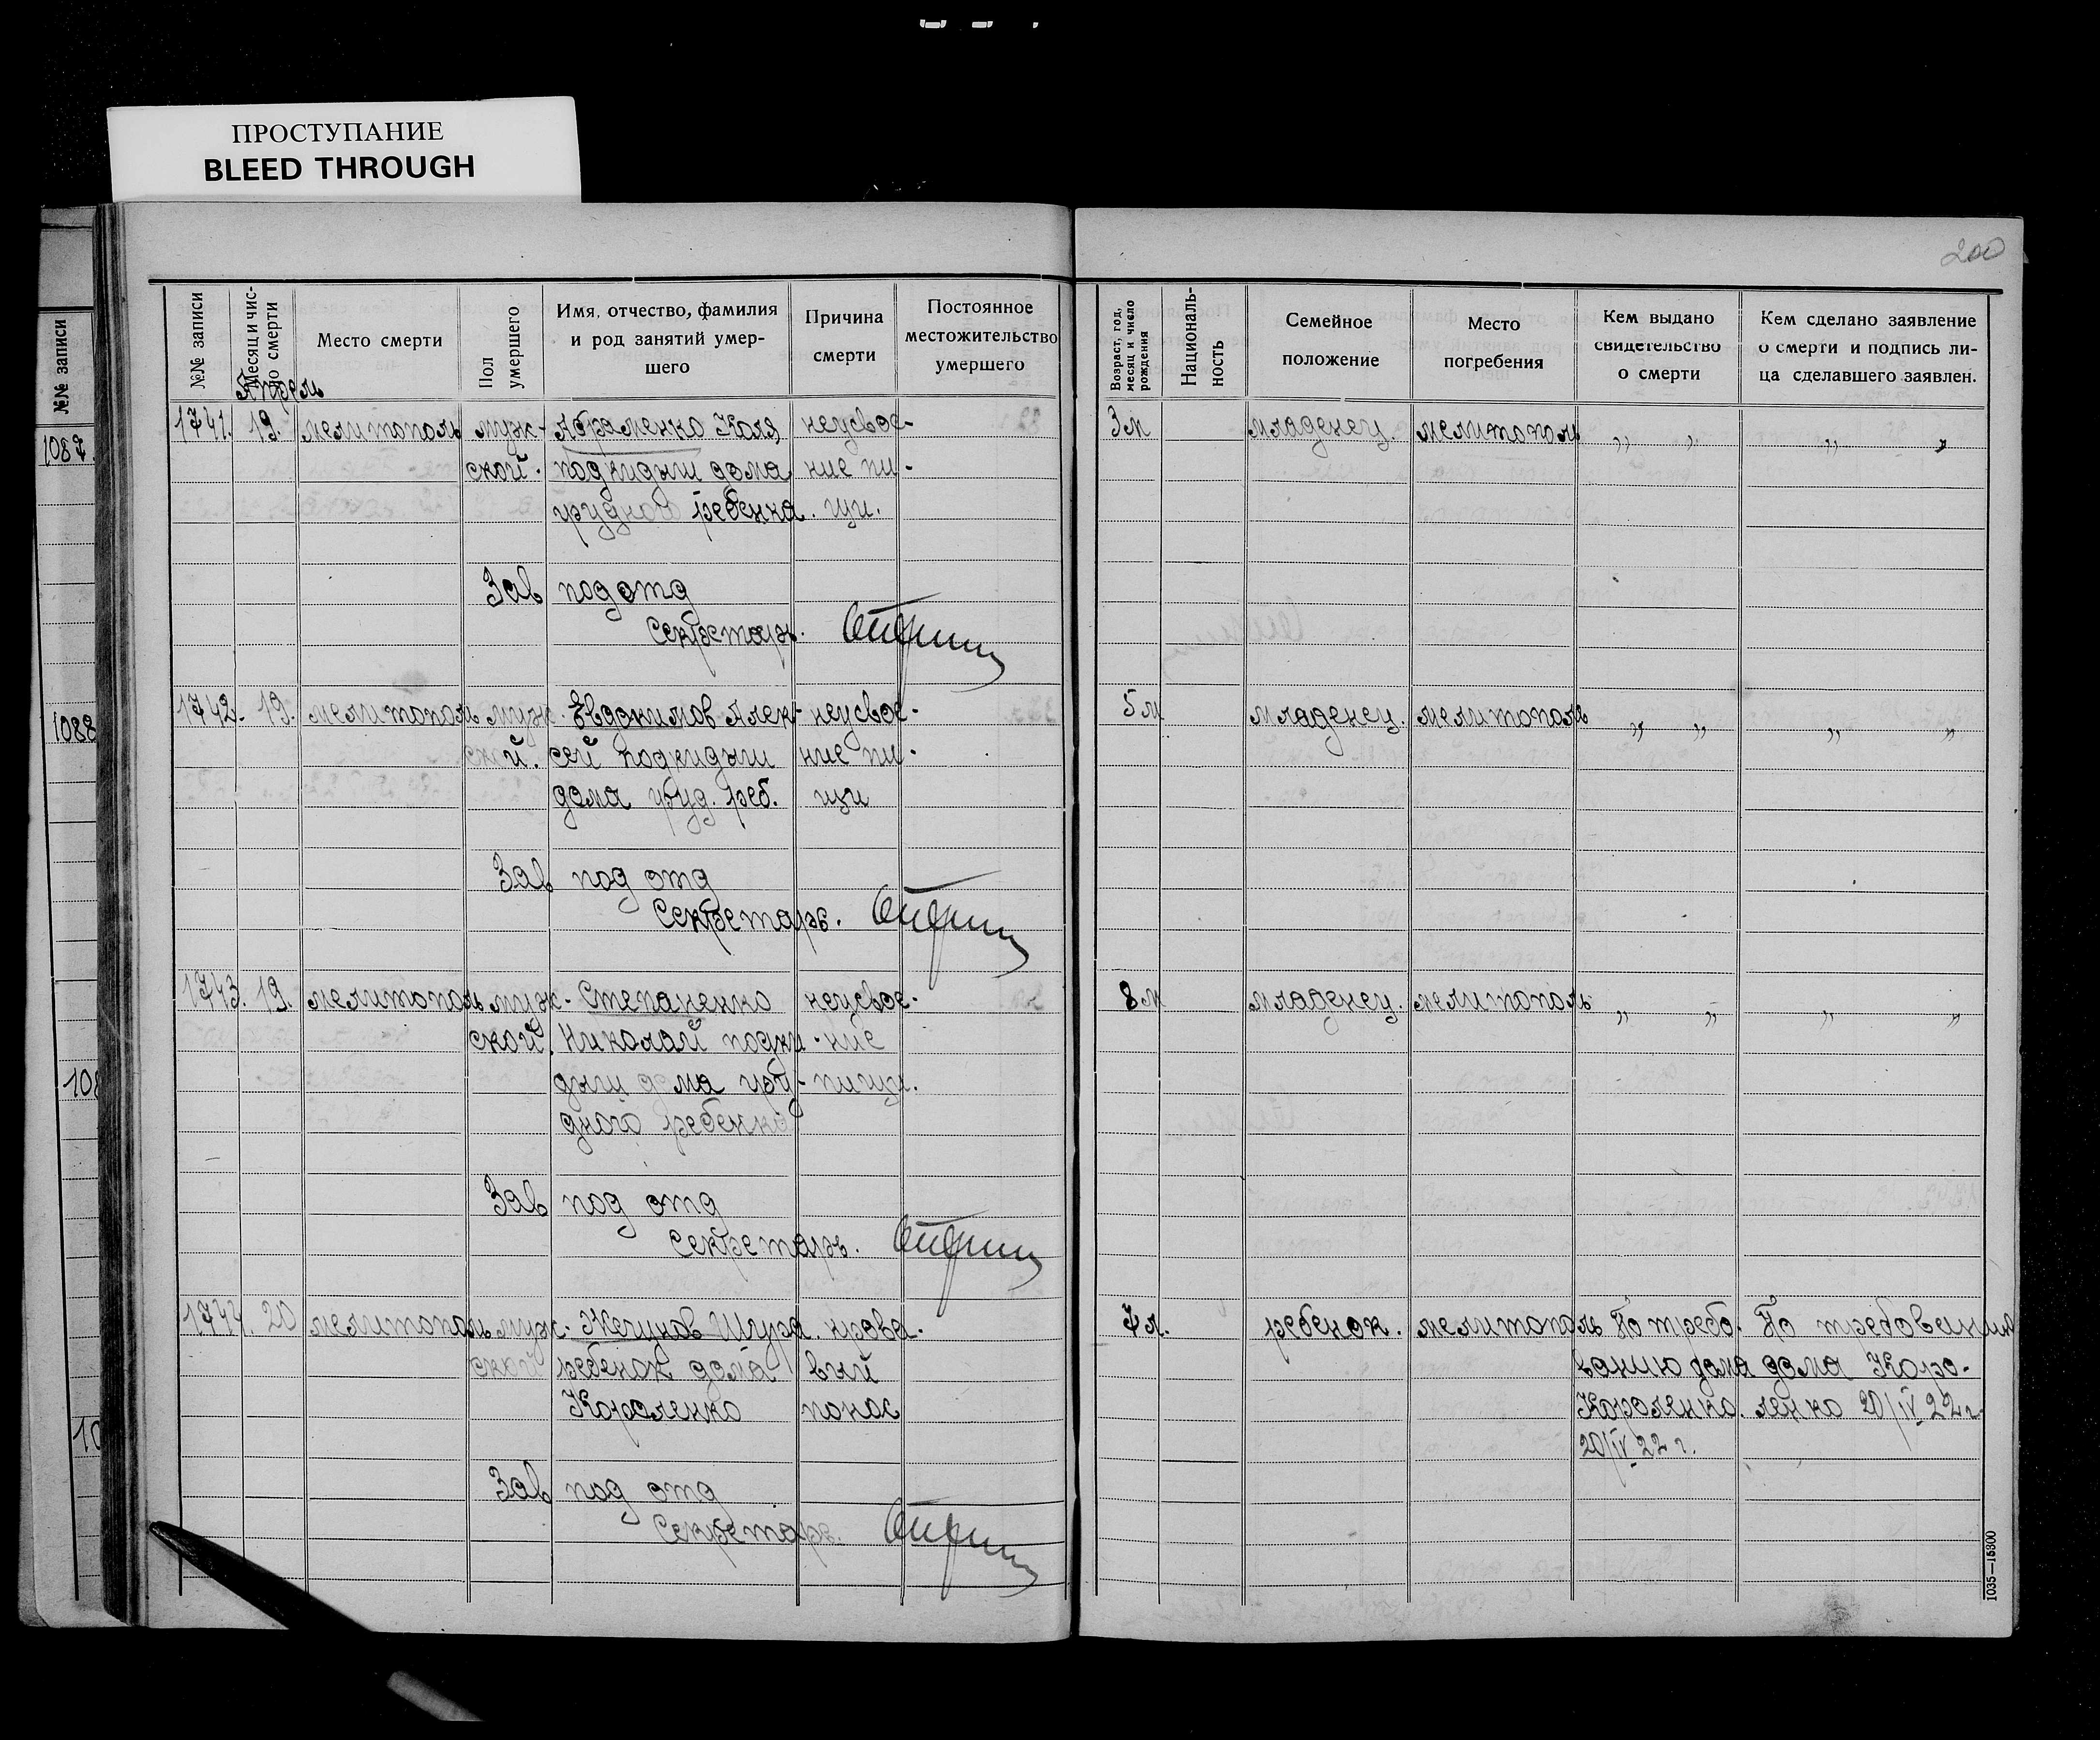 ПРОСТУПАНИЕ
BLEED THROUGH
200
№№ записи
1087.
1088
108
10
№№ записи
Месяц и чис-
ло смерти
Место смерти
Пол
умершего
Имя, отчество, фамилия
и род занятий умер-
шего
Причина
смерти
Постоянное
местожительство
умершего
Возраст, год,
месяц и число
рождения
Националь-
ность
Семейное
положение
Место
погребения
Кем выдано
свидетельство
о смерти
Кем сделано заявление
о смерти и подпись ли-
ца сделавшего заявлен.
Апрель
1741. 19. мелитополь муж- Абраменко Коля неусвое- 3м младенец. мелитополь „ „ „ „
ской. подкидыш дома ние пи-
грудного ребенка. щи.
Зав подотд
Секретарь.
1742. 19. мелитополь муж. Евдокимов Алек- неусвое- 5м младенец. мелитополь „ „ „ „
ской. сей подкидыш ние пи-
дома груд. реб. щи
Зав под отд
Секретарь.
1743. 19. мелитополь муж- Степаненко неусвое- 8м младенец. мелитополь „ „ „ „
ской. Николай подки- ние
дыш дома гру- пищи.
дного ребенка
Зав под отд
Секретарь.
1744. 20 мелитополь муж- Жегунов Шура. крова- 7л. ребенок. мелитополь По требо- По требованию
ской ребенок дома вый ванию дома дома Коро-
Короленко понос Короленко. ленко 20/IV 22 г.
20/IV 22 г.
Зав под отд
Секретарь.
1035—15300